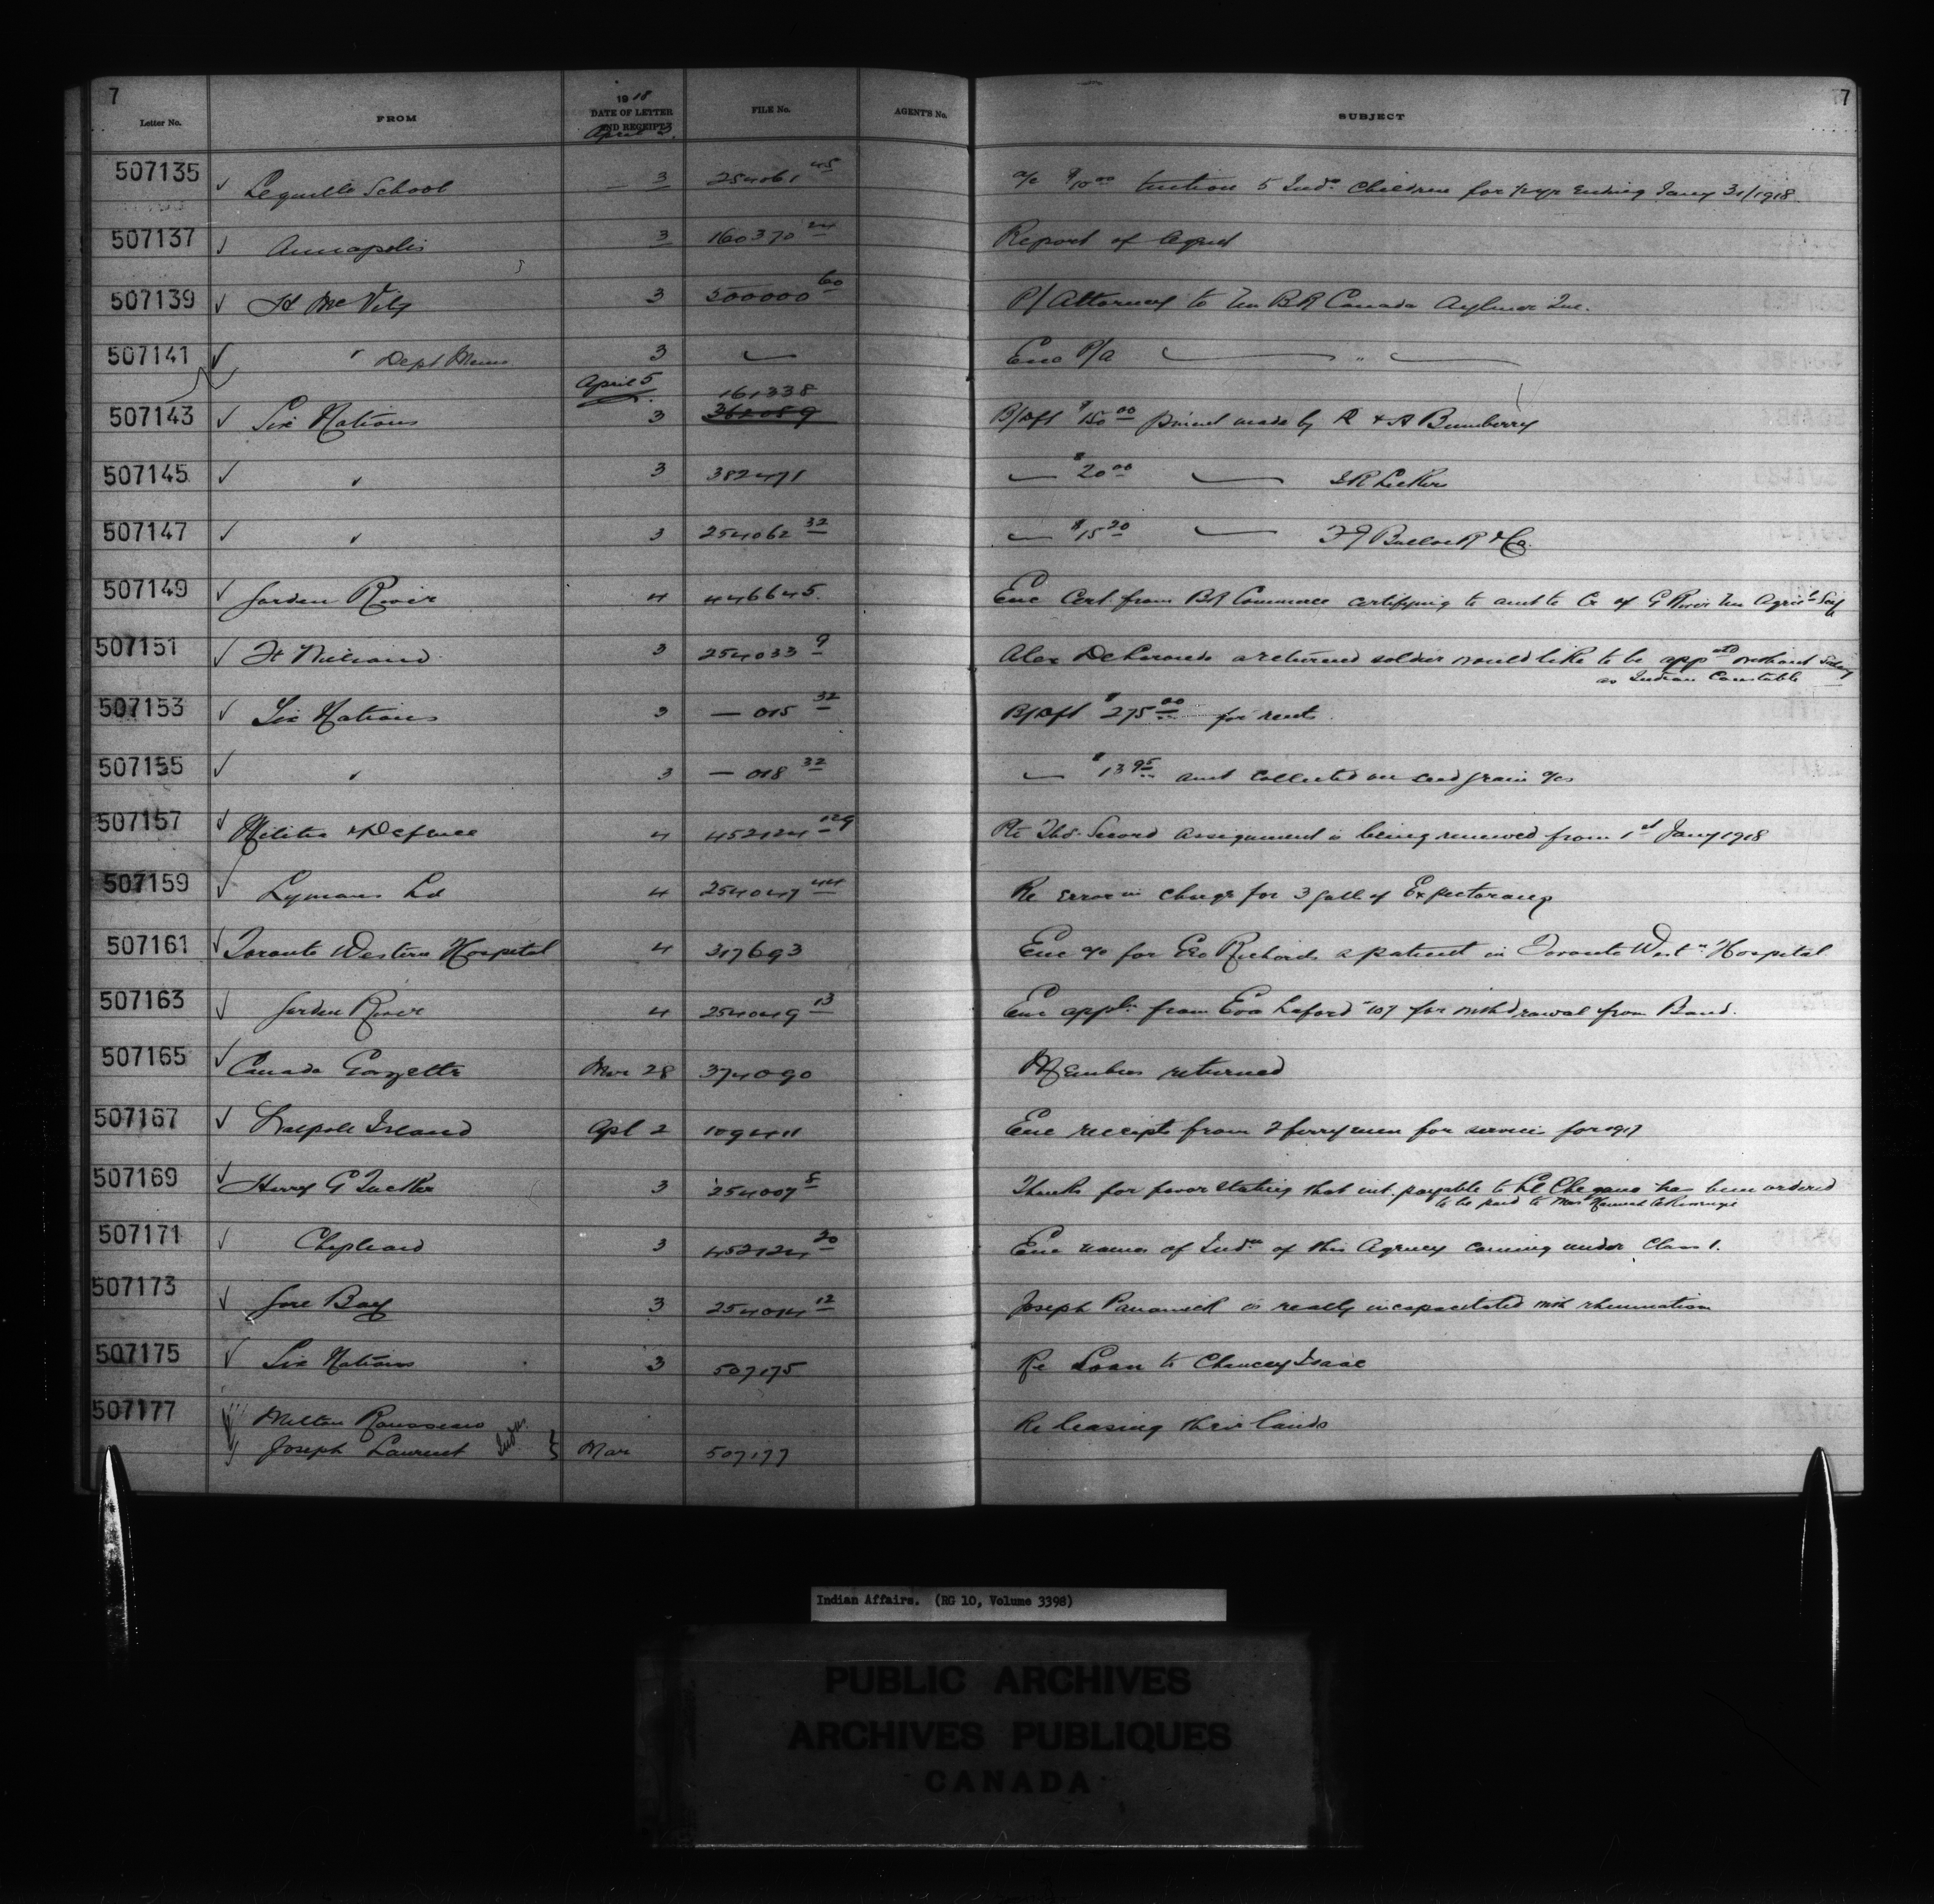 7 7
Letter No. FROM 1918 DATE OF LETTER AND RECEIPT FILE No. AGENT'S No. SUBJECT
April 3
507135 ✓ Lequille School 3 254061 45 a/c $10.00 tuition 5 Inds children for ending Jany 31/1918
507137 ✓ Annapolis 3 160370 24 Report of Agent
507139 ✓ 3 500000 60 P/Attorney to Un Bk Canada Aylmer Que.
507141 ✓ " Dept Memo 3 — Enc P/a — " —
April 5
507143 ✓ Six Nations 3 161338 B/Dft $150.00 pmient made by R & A Bumberry
507145 ✓ " 3 382471 — $20.00 —
507147 ✓ " 3 254062 32 — $15.20 — Bullock & Co.
507149 ✓ Garden River 4 446645. Enc Cert. from Bk Commerce certifying to amt to Cr of G River Un Agricl Socy
507151 ✓ Ft William 3 254033 9 Alex a returned soldier would like to be appntd without Salary
as Indian Constable
507153 ✓ Six Nations 3 — 015 32 B/Dft $275.00 for rents
507155 ✓ " 3 — 018 32 — $13.95 amt collected on seed grain a/cs
507157 ✓ Militia & Defence 4 452124 129 Pte Thos. Secord assignment is being renewed from 1st Jany 1918
507159 ✓ Lymans Ld 4 254047 44 Re error in charge for 3 galls of Expectorans
507161 ✓ Toronto Western Hospital 4 317693 Enc a/c for Geo Richards a patient in Toronto Westn Hospital
507163 ✓ Garden River 4 254049 13 Enc appln from Eva Laford 107 for withdrawal from Band.
507165 ✓ Canada Gazette Mar 28 374090 returned
507167 ✓ Walpole Island Apl 2 109411 Enc receipts from 2 ferrymen for services for 1917
507169 ✓ Harry G Tucker 3 254007 8 Thanks for favor stating that int. payable to has been ordered
to be paid to Mrs
507171 ✓ Chapleau 3 452124 20 Enc names of Inds of this Agency coming under Class 1.
507173 ✓ Gore Bay 3 254014 12 Joseph Panamick is really incapacitated with rheumatism
507175 ✓ Six Nations 3 507175 Re Loan to Chancey Isaac
507177 Milton Rousseau Re leasing their lands
✓ Joseph Laurent Inds. Mar 507177
Indian Affairs. (RG 10, Volume 3398)
PUBLIC ARCHIVES
ARCHIVES PUBLIQUES
CANADA